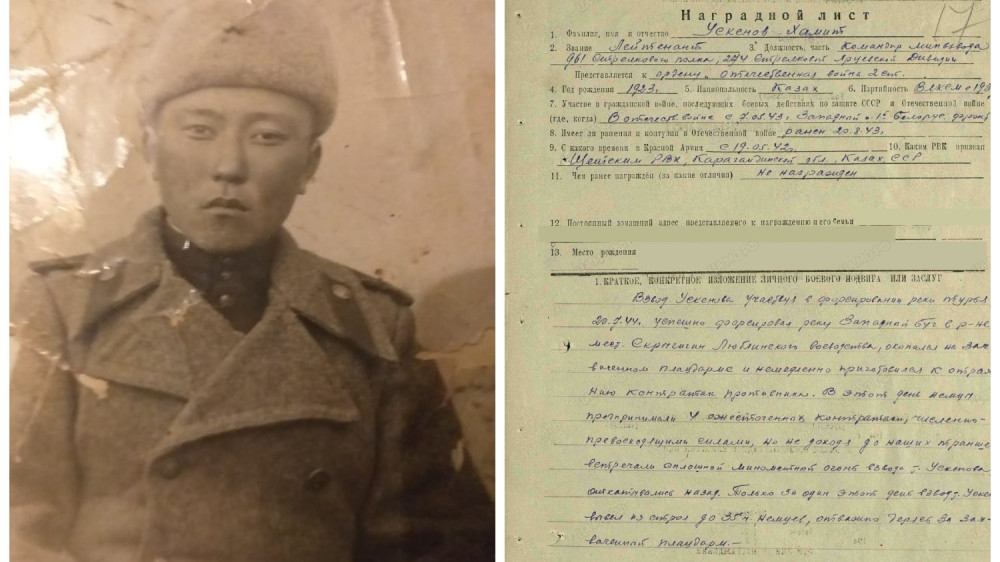 17
Наградной лист
1. Фамилия, имя и отчество Ускенов Хамит
2. Звание Лейтенант 3. Должность, часть Командир минвзвода
961 Стрелкового полка, 274 Стрелковой Ярцевской Дивизии
Представляется к ордену „Отечественная война 2 ст.
4. Год рождения 1923. 5. Национальность Казах 6. Партийность
7. Участие в гражданской войне, последующих боевых действиях по защите СССР и Отечественной войне
(где, когда) В отечеств. войне с 7.05.43. Западной и 1й Белорус. фронт
8. Имеет ли ранения и контузии в Отечественной войне ранен 20.8.43.
9. С какого времени в Красной Армии с 19.05.42г. 10. Каким РВК призван
РВК, Карагандинской обл. Казах. ССР
11. Чем ранее награждён (за какие отличия) не награжден
12. Постоянный домашний адрес представляемого к награждению и его семьи
13. Место рождения
1. КРАТКОЕ, КОНКРЕТНОЕ ИЗЛОЖЕНИЕ ЛИЧНОГО БОЕВОГО ПОДВИГА ИЛИ ЗАСЛУГ
Взвод Ускенова участвуя в форсировании реки
20.7.44. успешно форсировал реку Западный Буг в р-не
мест. Люблинского воеводства, окопался на зах-
ваченном плацдарме и немедленно приготовился к отра
нию контратак противника. В этот день немцы
препринимали 4 ожесточенных контратаки, численно-
превосходящими силами, но не доходя до наших транше
встречали сплошной миномётный огонь взвода т. Ускенова
откатывались назад. Только за один этот день взвод т. Уске
вывел из строя до 35 немцев, отважно дерясь за зах-
ваченный плацдарм.-